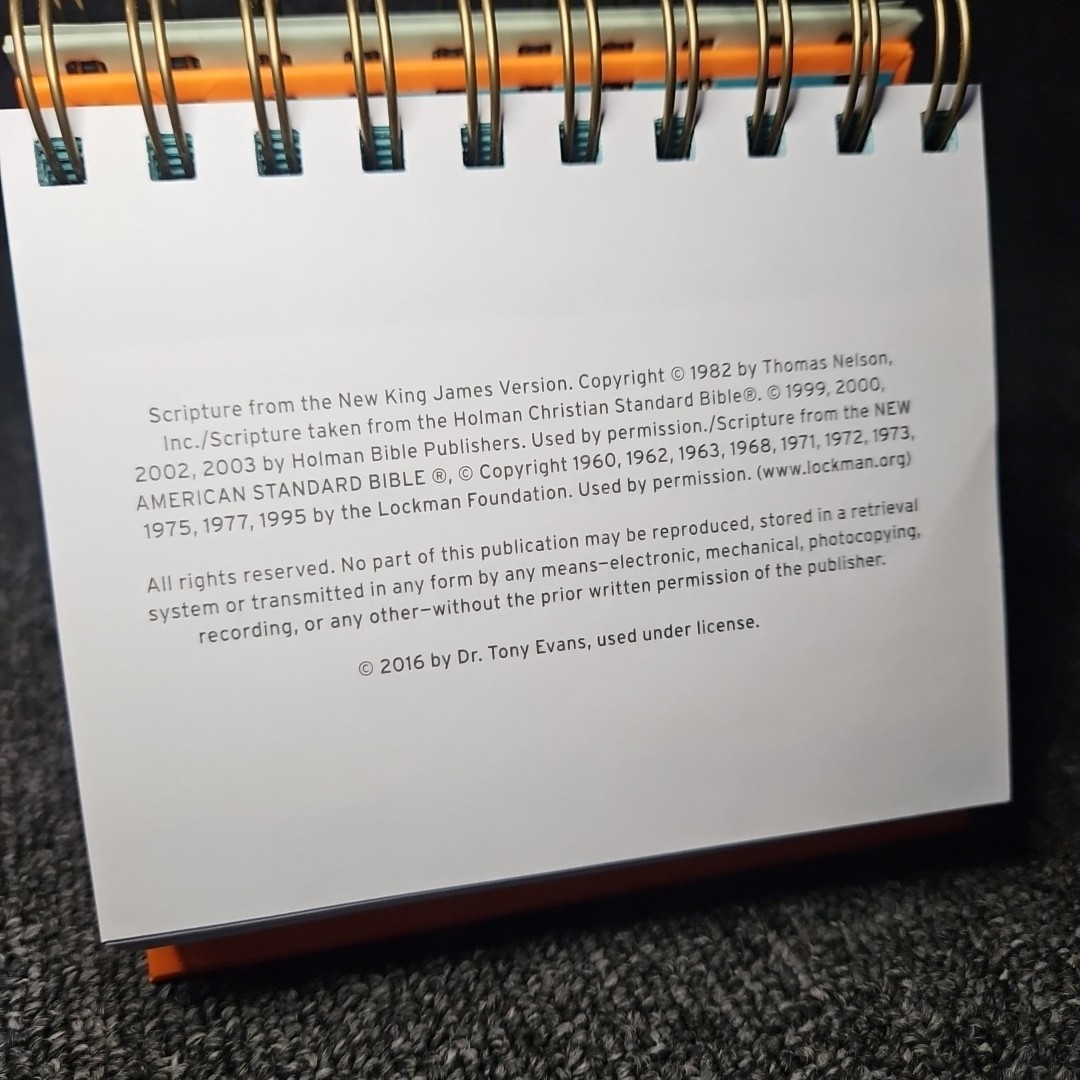 Scripture from the New King James Version. Copyright © 1982 by Thomas Nelson,
Inc./Scripture taken from the Holman Christian Standard Bible®. © 1999, 2000,
2002, 2003 by Holman Bible Publishers. Used by permission./Scripture from the NEW
AMERICAN STANDARD BIBLE ®, © Copyright 1960, 1962, 1963, 1968, 1971, 1972, 1973,
1975, 1977, 1995 by the Lockman Foundation. Used by permission. (www.lockman.org)
All rights reserved. No part of this publication may be reproduced, stored in a retrieval
system or transmitted in any form by any means—electronic, mechanical, photocopying,
recording, or any other—without the prior written permission of the publisher.
© 2016 by Dr. Tony Evans, used under license.